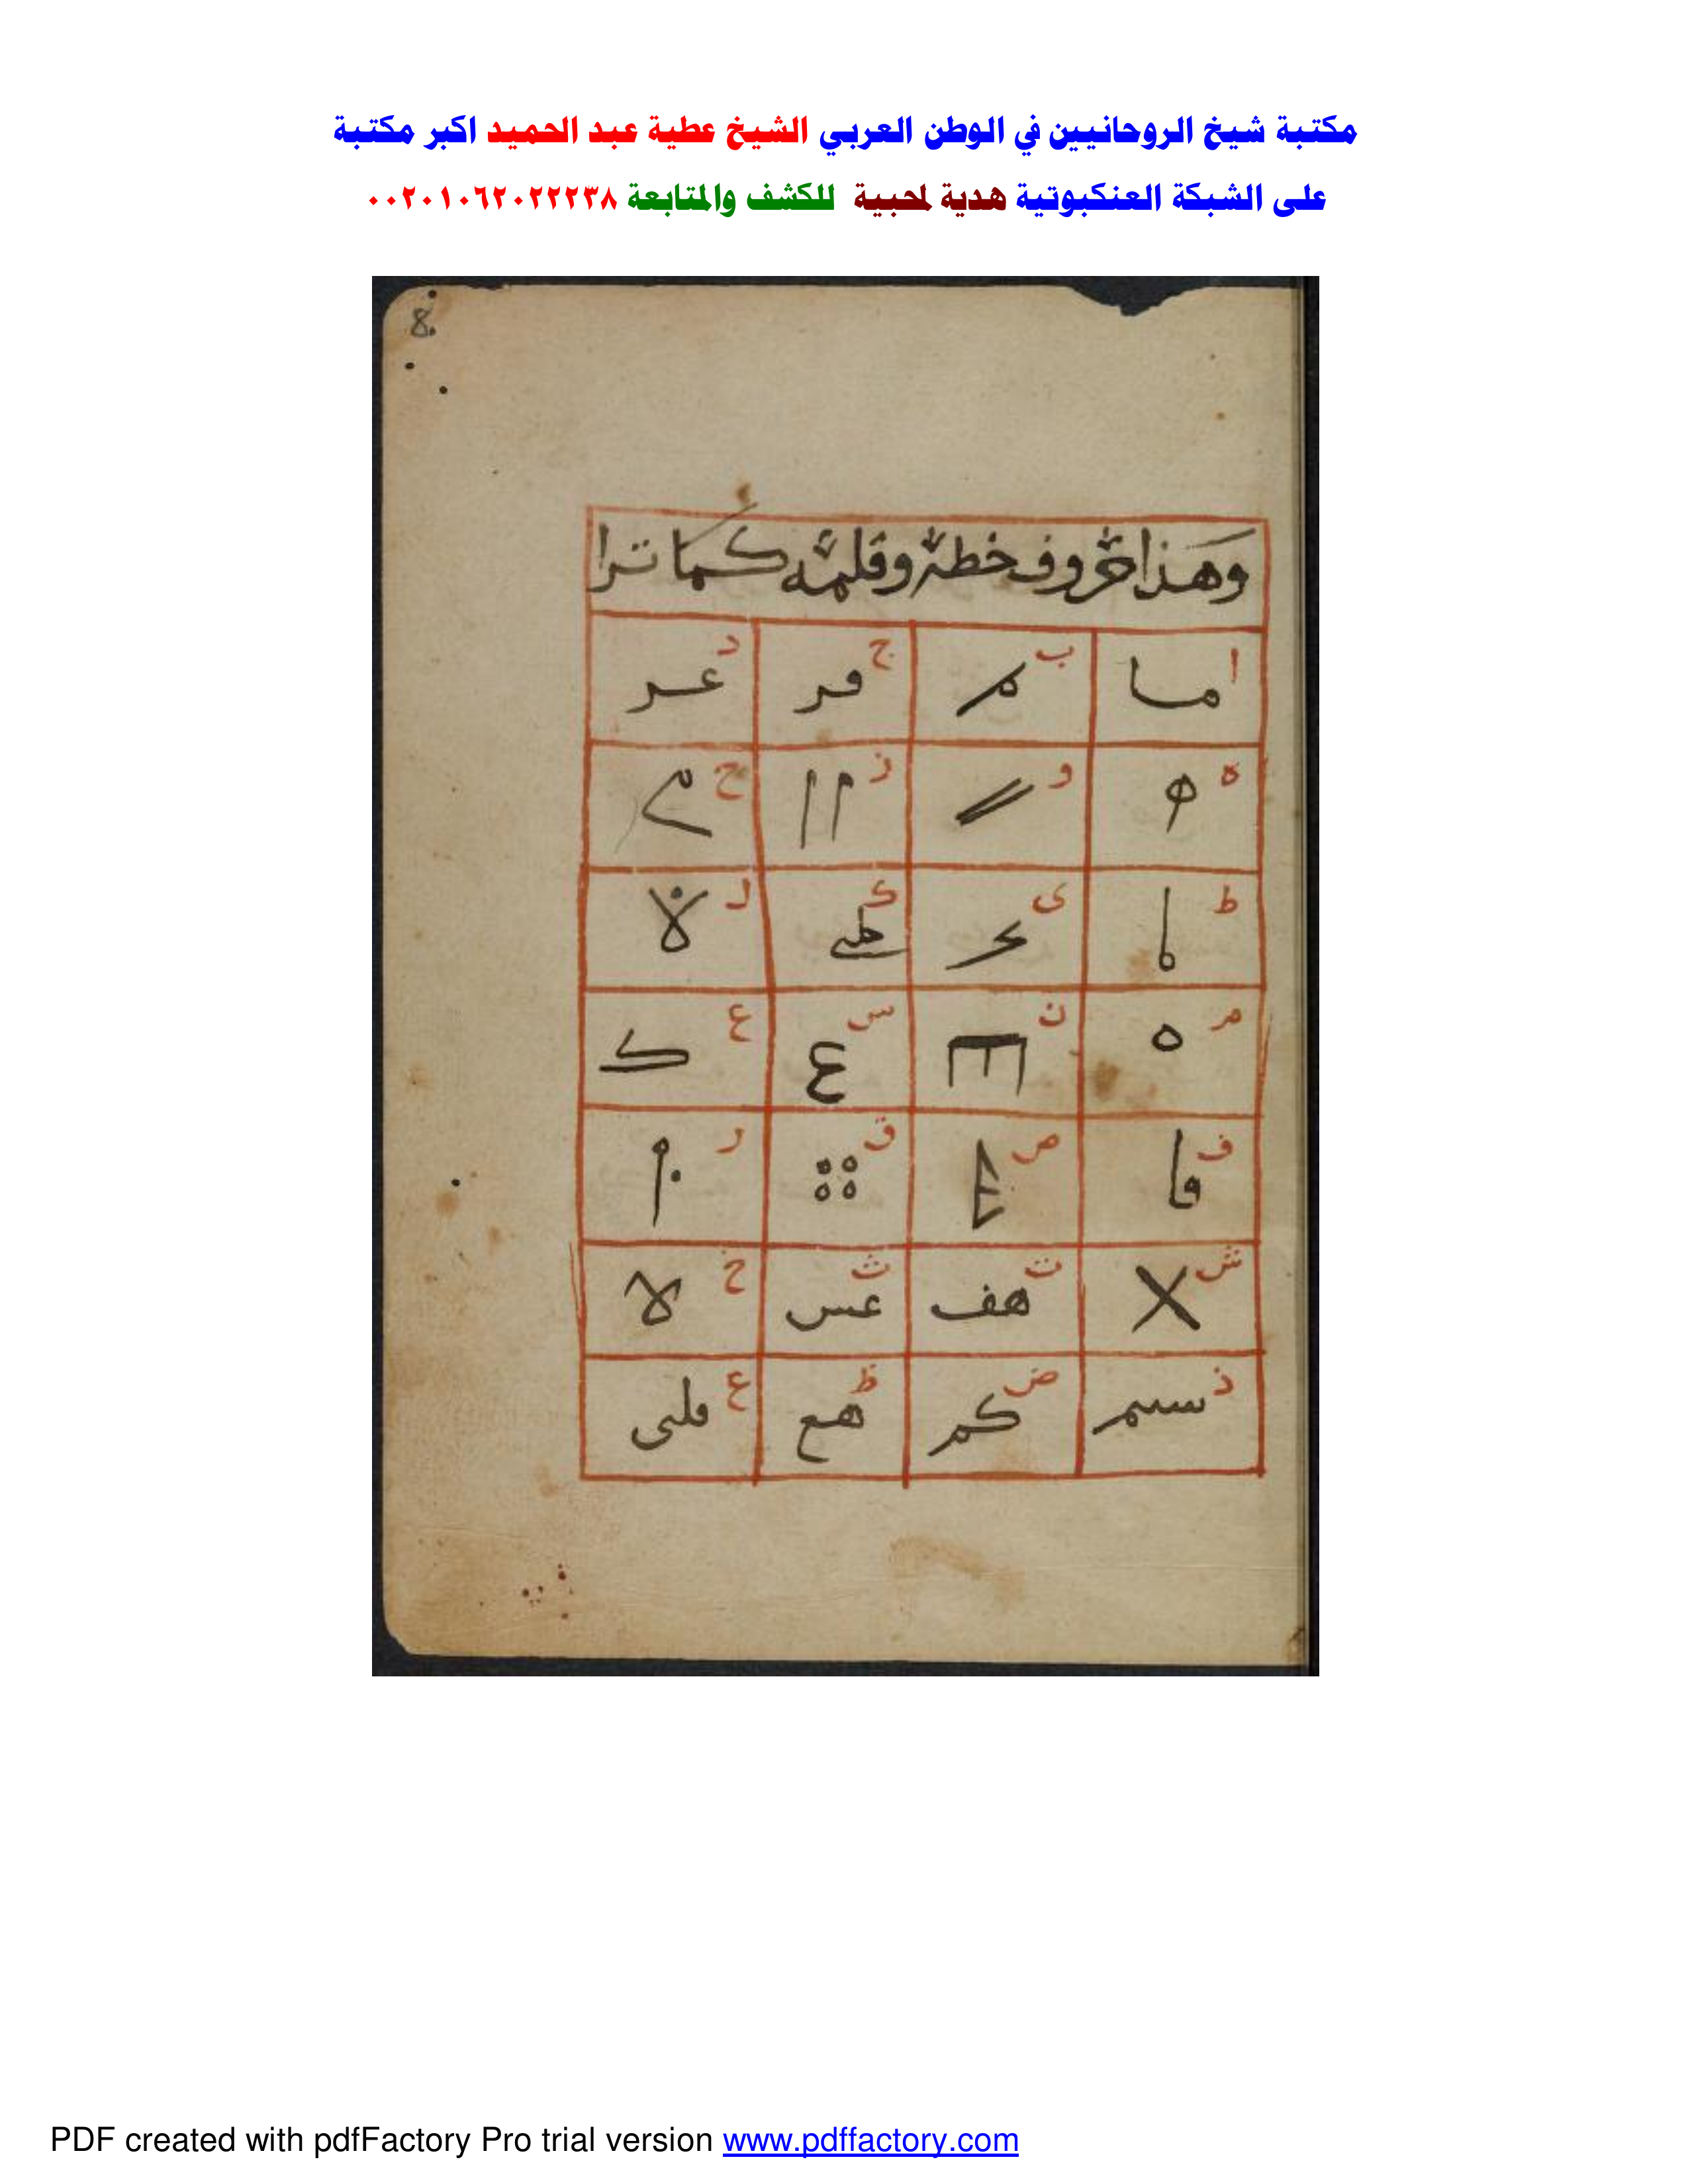 مكتبة شيخ الروحانيين في الوطن العربي الشيخ عطية عبد الحميد اكبر مكتبة
على الشبكة العنكبوتية هدية لمحبية للكشف والمتابعة ٠٠٢٠١٠٦٢٠٢٢٢٣٨
8.
وهذا حروف خطه وقلمه كما ترا
ا اما ب م ج د عر
ه و ز ح
ط ى ك ل
م ن س ع
ف فا ص ق ر
ش ت هف ث عس خ لا
ذ سم ض كم ظ هع غ
PDF created with pdfFactory Pro trial version www.pdffactory.com